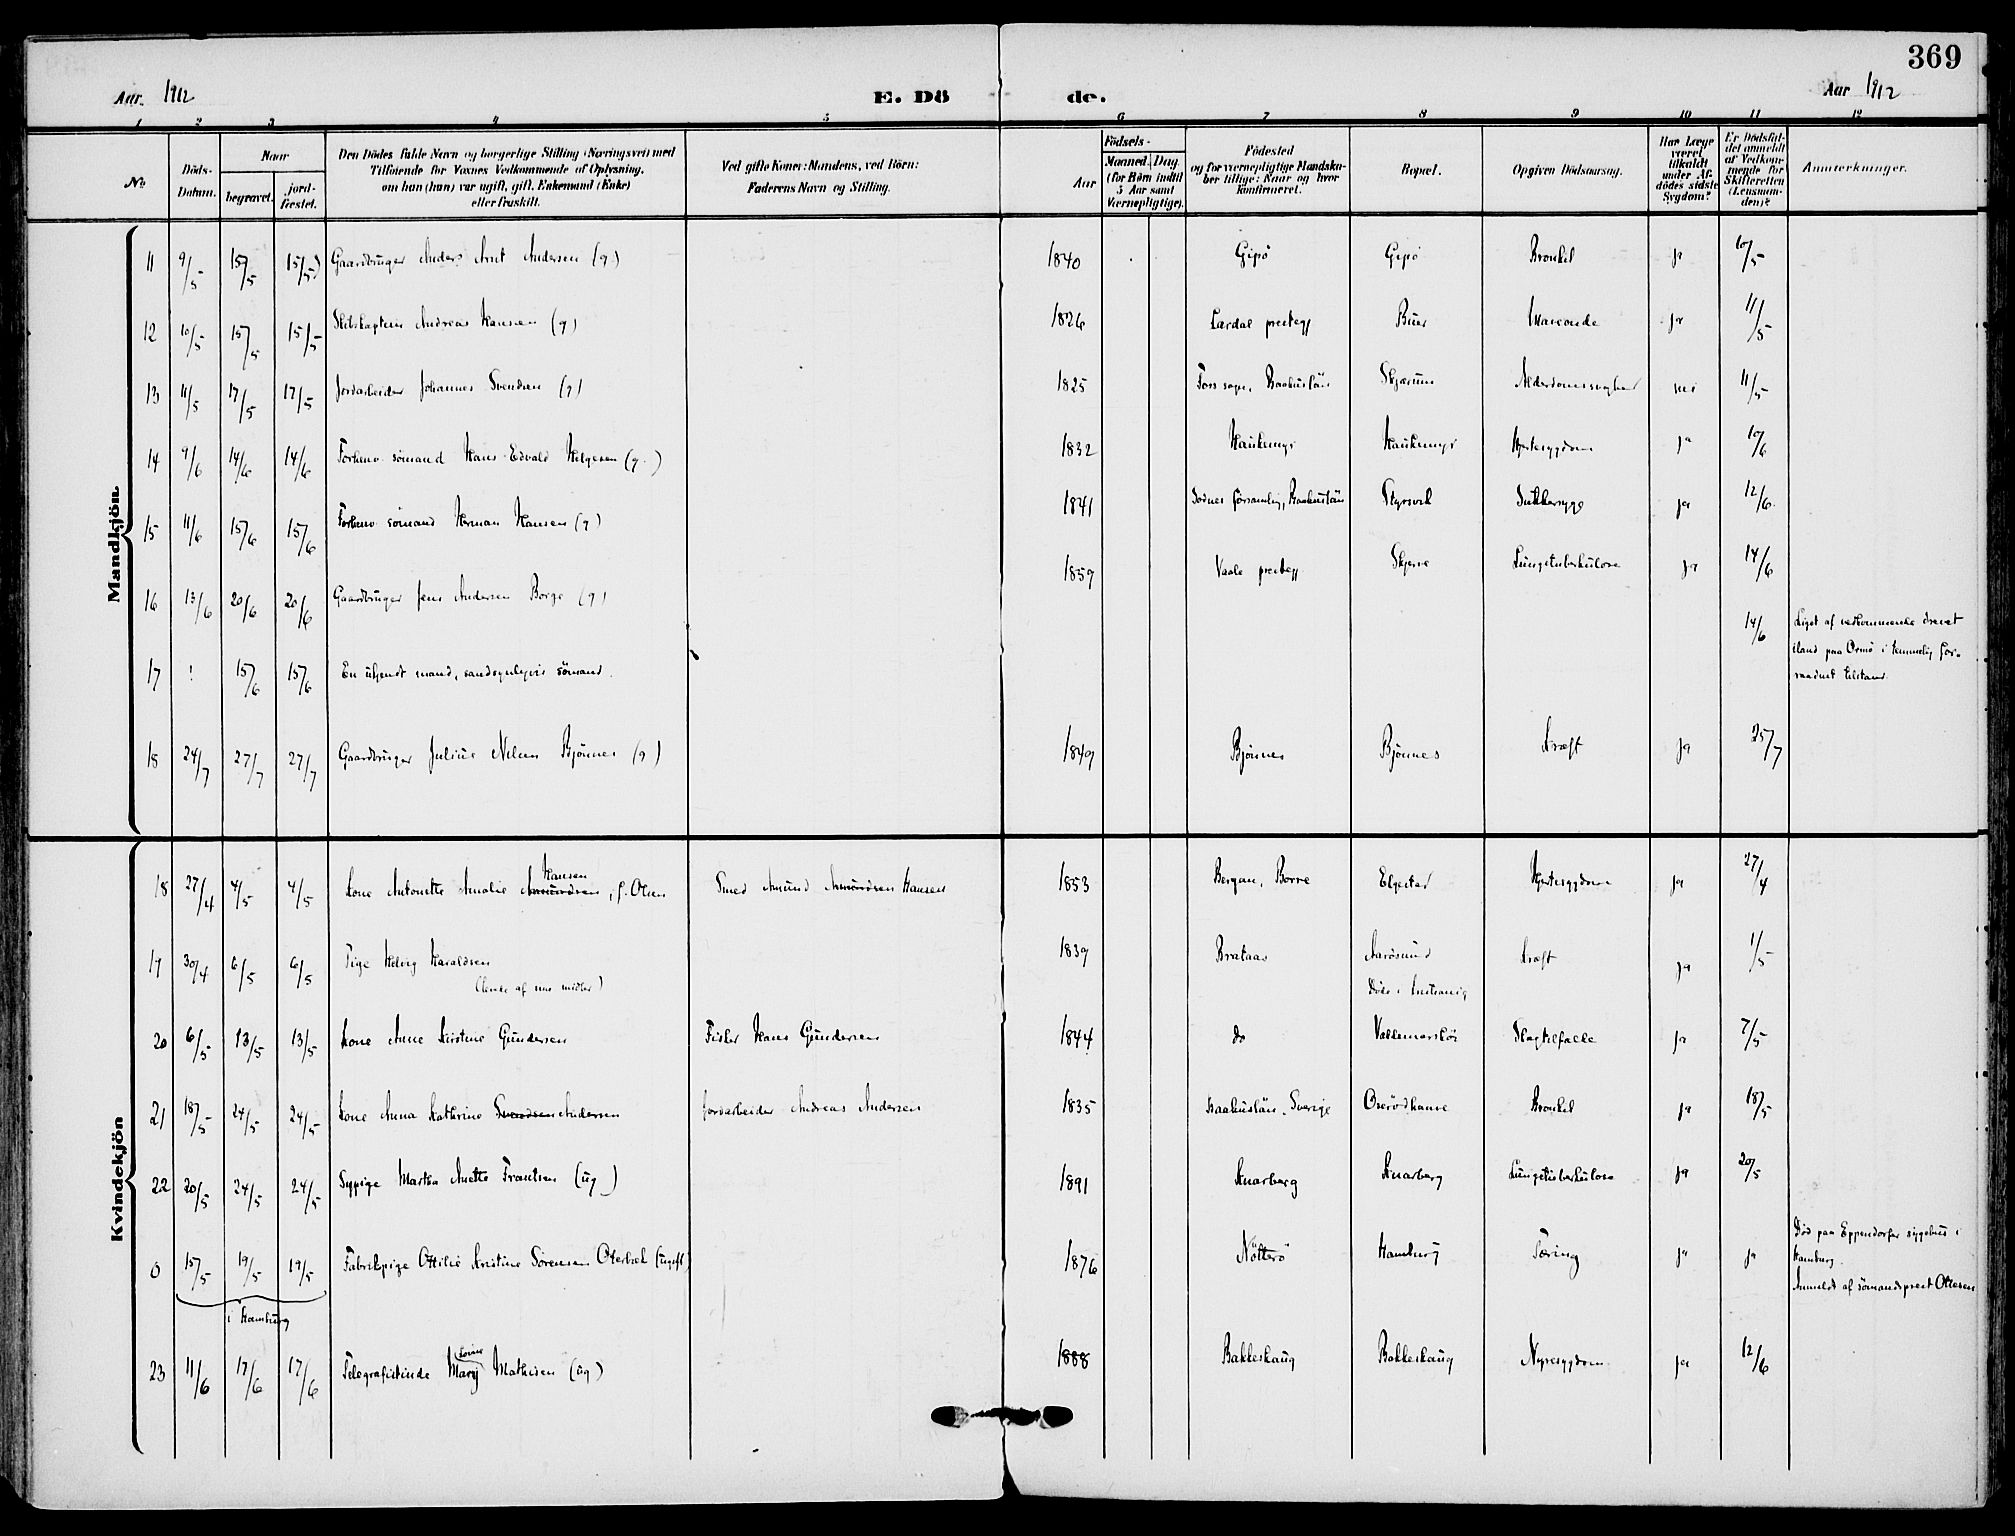 369
Aar. 1912
E. Dö
de.
Aar 1912
1 2 3 4 5 6 7 8 9 10 11 12
No
Döds-
Datum.
Naar
begravet.
jord-
fæstet.
Den Dödes fulde Navn og borgerlige Stilling (Næringsvei) med
Tilföiende for Voxnes Vedkommende af Oplysning,
om han (hun) var ugift, gift, Enkemand (Enke)
eller fraskilt.
Ved gifte Koner: Mandens, ved Börn:
Faderens Navn og Stilling.
Födsels-
Aar
Maaned. Dag.
(for Börn indtil
5 Aar samt
Værnepligtige).
Födested
og for værnepligtige Mandska-
ber tillige: Naar og hvor
konfirmeret.
Bopæl.
Opgiven Dödsaarsag.
Har Læge
været
tilkaldt
under Af-
dödes sidste
Sygdom?
Er Dödsfal-
det anmeldt
af Vedkom-
mende for
Skifteretten
(Lensman-
den)?
Anmærkninger.
Mandkjön
11 9/5 15/5 15/5 Gaardbruger Anders Arnt Andersen (g.) 1840 Gipö Gipö Bronkit ja 10/5
12 10/5 15/5 15/5 Skibskaptein Andreas Hansen (g) 1826 Lardal prestegj Buer Marconde ja 11/5
13 11/5 17/5 17/5 Jordarbeider Johannes Svendsen (g) 1825 Fors sogn, Baahuslän Skjærum Alderdomssvaghed nei 11/5
14 9/6 14/6 14/6 Forhenv. sömand Hans Edvald Helgesen (g.) 1832 Haukemyr Haukemyr Hjertesygdom ja 10/6
15 11/6 15/6 15/6 Forhenv sömand Herman Hansen (g) 1841 forsamling, Baahuslän Styrsvik Sukkersyge ja 12/6
16 13/6 20/6 20/6 Gaardbruger Jens Andersen Borge (g) 1859 Vaale prestegj Skjerve Lungetuberkulose ja 14/6
17 ! 15/6 15/6 En ukjendt mand, sandsynligvis sömand. 14/6 Liget af vedkommende drevet
iland paa Ormö i temmelig for-
raadnet tilstand.
18 24/7 27/7 27/7 Gaardbruger Julius Nilsen Bjönnes (g) 1849 Bjönnes Bjönnes Kræft ja 25/7
Kvindekjön
18 27/4 4/5 4/5 Kone Antonette Amalie Amundsen Hansen, f. Olsen Smed Amund Amundsen Hansen 1853 Bergan, Borre Elgestad Hjertesygdom ja 27/4
19 30/4 6/5 6/5 Pige Helvig Haraldsen 1839 Brataas Aarösund Kræft ja 1/5
(Levede af sine midler) Död i Kristiania
20 6/5 13/5 13/5 Kone Anne Kirstine Gundersen Fisker Hans Gundersen 1844 do Valdemarskör Slagtilfælde ja 7/5
21 18/5 24/5 24/5 Kone Anna Kathrine Svendsen Andersen Jordarbeider Andreas Andersen 1835 Baahuslän, Sverige Oserödhaven Bronkit ja 18/5
22 20/5 24/5 24/5 Sypige Martha Anette Frantsen (ug) 1891 Knarberg Knarberg Lungetuberkulose ja 20/5
0 15/5 19/5 19/5 Fabrikpige Ottilie Kristine Sörensen Oterbæk (ugift) 1876 Nötterö Hamburg Tæring ja ja Död paa Eppendorfer sygehus i
Hamburg.
Anmeldt af sömandsprest Ottesen
i Hamburg
23 11/6 17/6 17/6 Telegrafistinde Mary Lovise Mathisen (ug) 1888 Bakkeskaug Bakkeskaug Nyresygdom ja 12/6